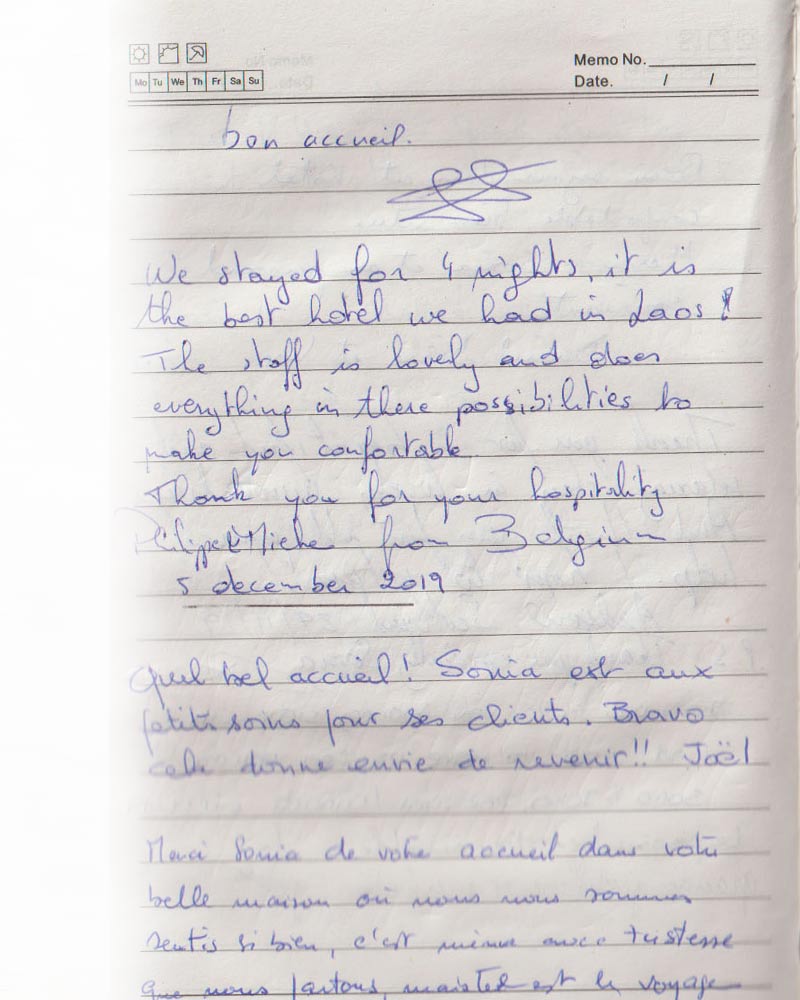 Mo Tu We Th Fr Sa Su
Memo No.
Date. / /
bon accueil.
We stayed for 4 nights, it is
the best hotel we had in Laos !
The staff is lovely and does
everything in there possibilities to
make you confortable
Thank you for your hospitality
from Belgium
5 december 2019
Quel bel accueil ! Sonia est aux
petits soins pour ses clients. Bravo
cela donne envie de revenir !! Joël
Merci Sonia de votre accueil dans votre
belle maison où nous nous sommes
sentis si bien, c'est même avec tristesse
que nous partons, mais tel est le voyage